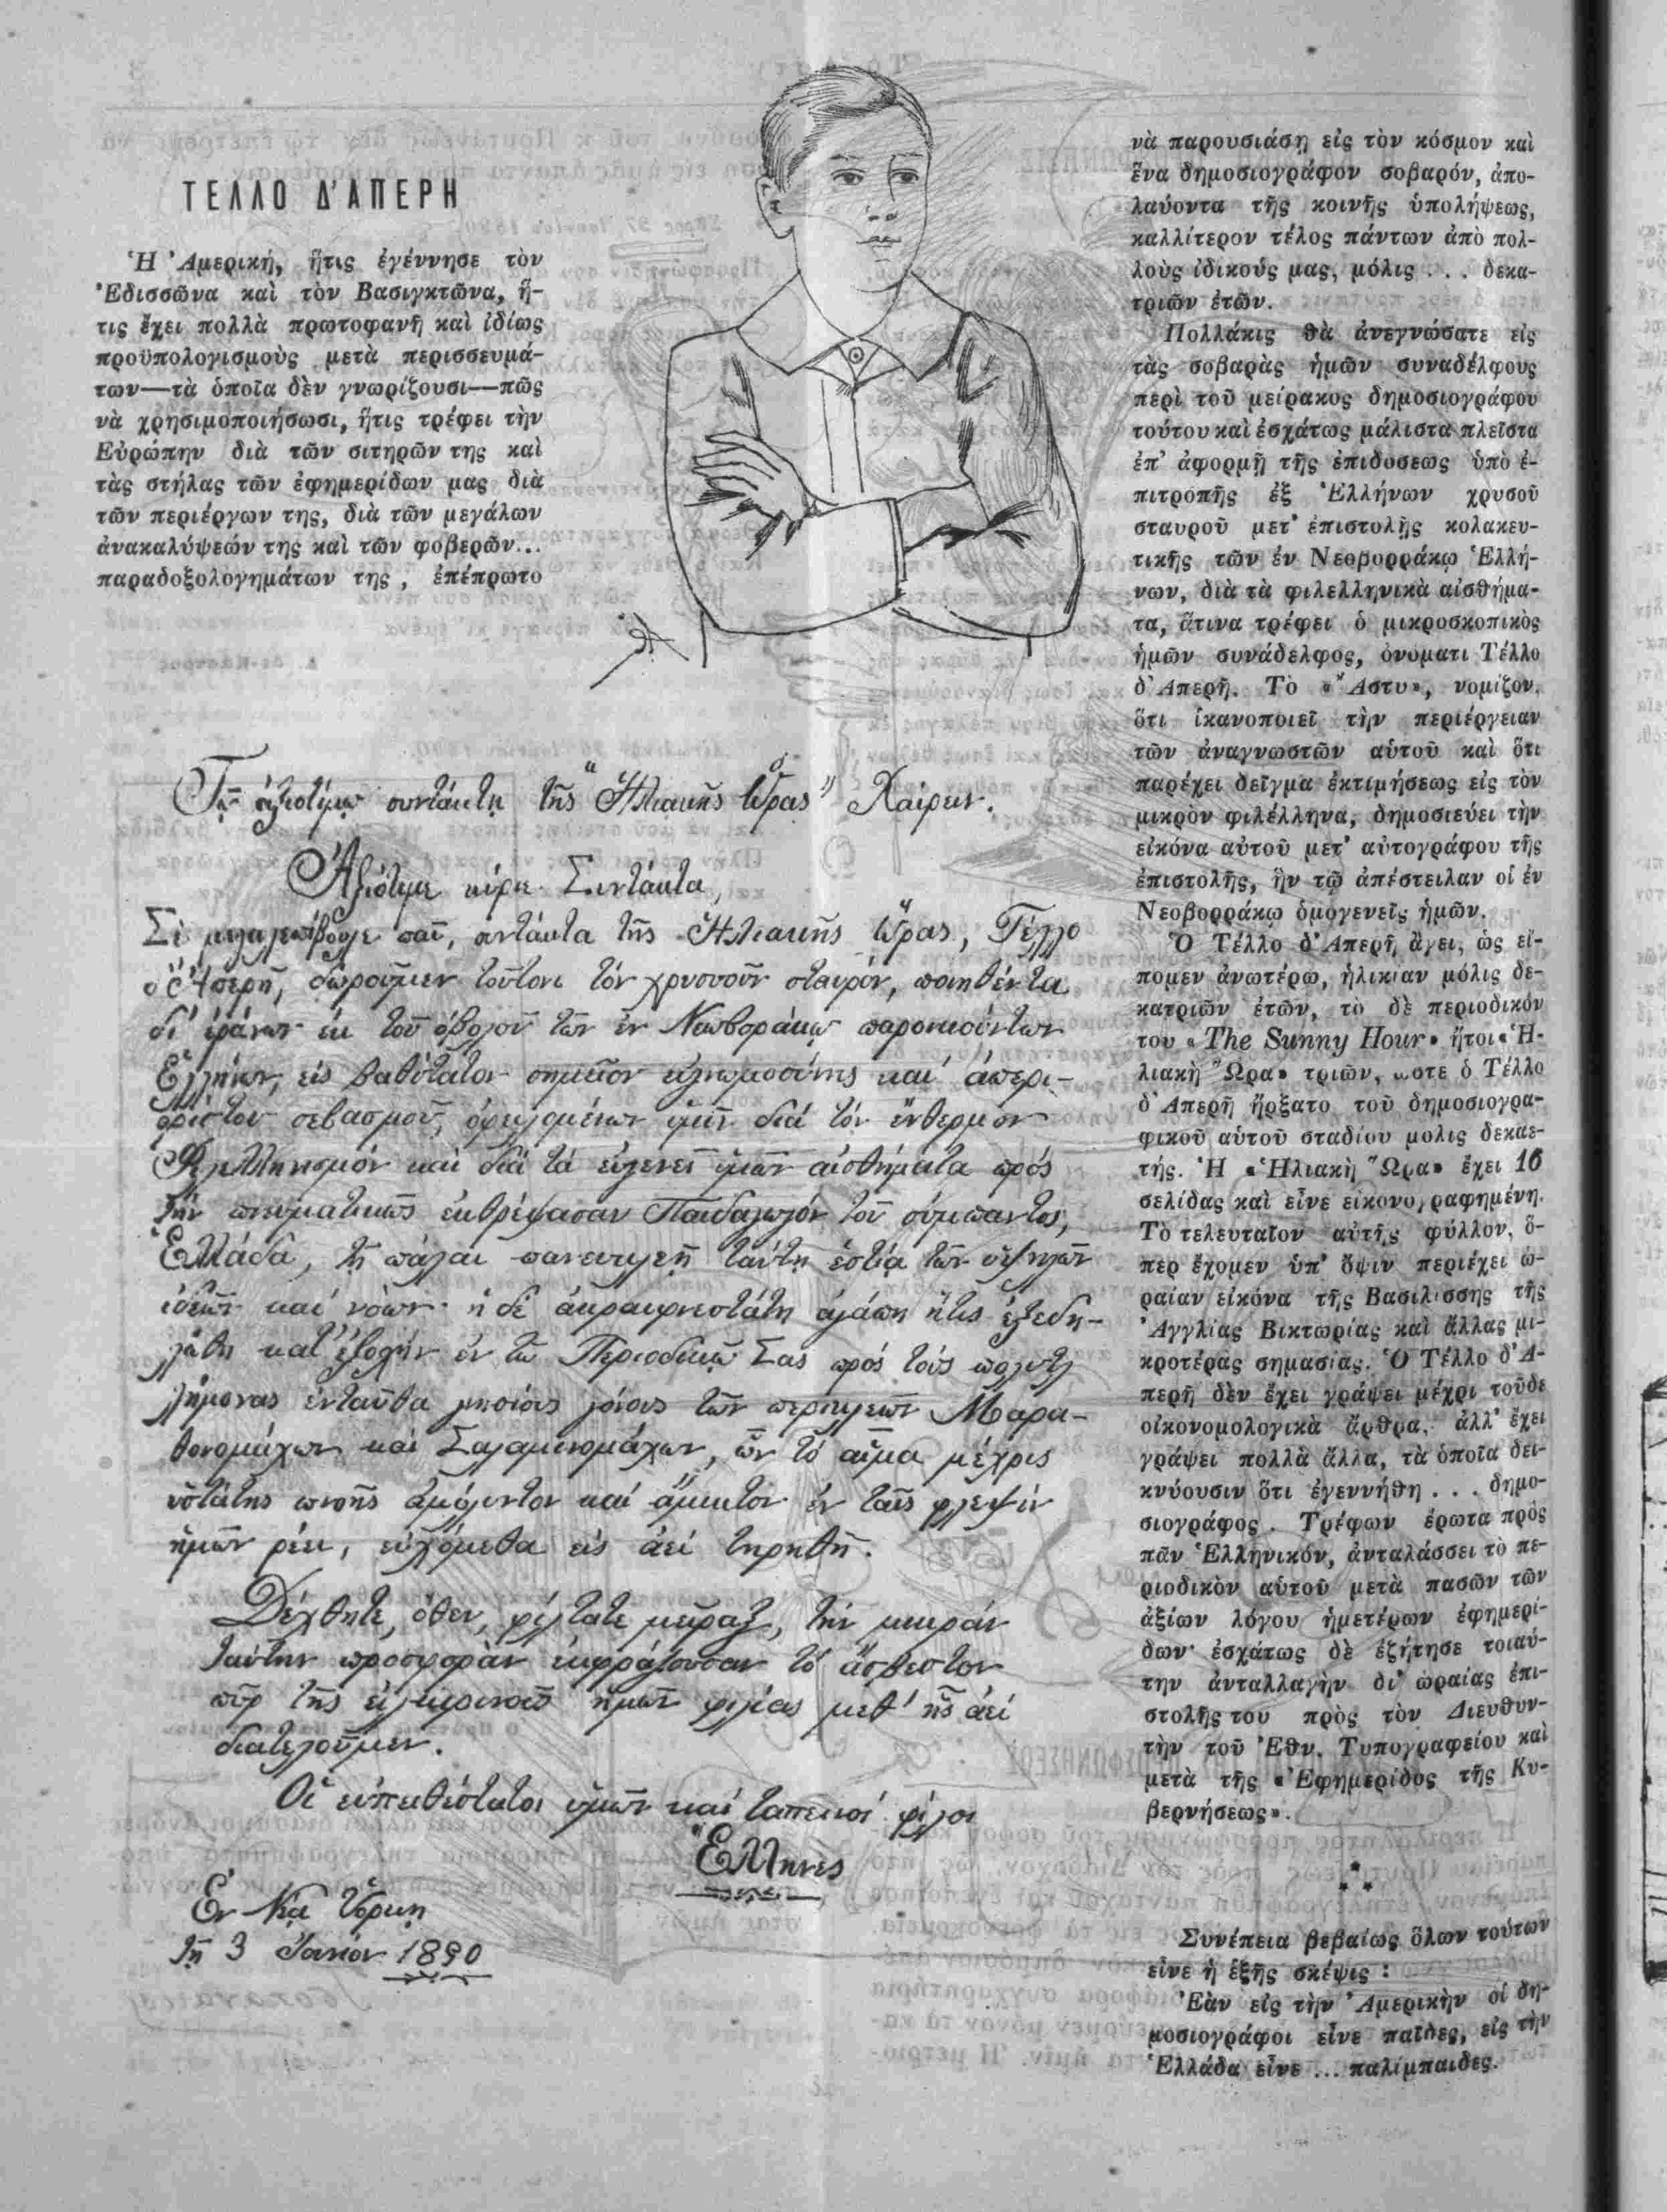 ΤΕΛΛΟ Δ'ΑΠΕΡΗ
Ἡ Ἀμερική, ἥτις ἐγέννησε τὸν
Ἐδισσῶνα καὶ τὸν Βασιγκτῶνα, ἥ-
τις ἔχει πολλὰ πρωτοφανῆ καὶ ἰδίως
προϋπολογισμοὺς μετὰ περισσευμά-
των—τὰ ὁποῖα δὲν γνωρίζουσι—πῶς
νὰ χρησιμοποιήσωσι, ἥτις τρέφει τὴν
Εὐρώπην διὰ τῶν σιτηρῶν της καὶ
τὰς στήλας τῶν ἐφημερίδων μας διὰ
τῶν περιέργων της, διὰ τῶν μεγάλων
ἀνακαλύψεών της καὶ τῶν φοβερῶν...
παραδοξολογημάτων της, ἐπέπρωτο
Τῷ ἀξιοτίμῳ συντάκτῃ τῆς "Ἡλιακῆς Ὥρας" Χαίρειν.
Ἀξιότιμε κύριε Συντάκτα,
Σὲ μεγαλεπίβουλε παῖ, συντάκτα τῆς Ἡλιακῆς Ὥρας, Τέλλο
δ' Ἀπερῆ, δωροῦμεν τοῦτον τὸν χρυσοῦν σταυρόν, ποιηθέντα
δι' ἐράνων ἐκ τοῦ ὀβολοῦ τῶν ἐν Νεοβοράκῳ παροικούντων
Ἑλλήνων, εἰς βαθύτατον σημεῖον εὐγνωμοσύνης καὶ ἀπερι-
ορίστου σεβασμοῦ, ὀφειλομένων ὑμῖν διὰ τὸν ἔνθερμον
Φιλελληνισμόν καὶ διὰ τὰ εὐγενῆ ὑμῶν αἰσθήματα πρός
τὴν πνευματικῶς ἐκθρέψασαν Παιδαγωγόν τοῦ σύμπαντος,
Ἑλλάδα, τῇ πάλαι πανευκλεῆ ταύτῃ ἑστίᾳ τῶν ὑψηλῶν
ἰδεῶν καὶ νόων· ἡ δὲ ἀκραιφνεστάτη ἀγάπη ἥτις ἐξεδη-
λώθη κατ' ἐξοχὴν ἐν τῷ Περιοδικῷ Σας πρός τοὺς πολυτλ
λήμονας ἐνταῦθα γνησίους γόνους τῶν περικλεῶν Μαρα-
θονομάχων καὶ Σαλαμινομάχων, ὧν τὸ αἷμα μέχρις
ὑστάτης πνοῆς ἀμόλυντον καὶ ἄμικτον ἐν ταῖς φλεψίν
ἡμῶν ρέει, εὐχόμεθα εἰς ἀεὶ τηρηθῇ.
Δέχθητε, ὅθεν, φίλτατε μεῖραξ, τὴν μικράν
ταύτην προσφορὰν ἐκφράζουσαν τὸ ἄσβεστον
πῦρ τῆς εἰλικρινοῦς ἡμῶν φιλίας μεθ' ἧς ἀεί
διατελοῦμεν.
Οἱ εὐπειθέστατοι ὑμῶν καὶ ταπεινοί φίλοι
Ἕλληνες
Ἐν Νέᾳ Ὑόρκῃ
τῇ 3 Ἰουνίου 1890
νὰ παρουσιάσῃ εἰς τὸν κόσμον καὶ
ἕνα δημοσιογράφον σοβαρόν, ἀπο-
λαύοντα τῆς κοινῆς ὑπολήψεως,
καλλίτερον τέλος πάντων ἀπὸ πολ-
λοὺς ἰδικούς μας, μόλις . . . δεκα-
τριῶν ἐτῶν.
Πολλάκις θὰ ἀνεγνώσατε εἰς
τὰς σοβαρὰς ἡμῶν συναδέλφους
περὶ τοῦ μείρακος δημοσιογράφου
τούτου καὶ ἐσχάτως μάλιστα πλεῖστα
ἐπ' ἀφορμῇ τῆς ἐπιδόσεως ὑπὸ ἐ-
πιτροπῆς ἐξ Ἑλλήνων χρυσοῦ
σταυροῦ μετ' ἐπιστολῆς κολακευ-
τικῆς τῶν ἐν Νεοβορράκῳ Ἑλλή-
νων, διὰ τὰ φιλελληνικὰ αἰσθήμα-
τα, ἅτινα τρέφει ὁ μικροσκοπικὸς
ἡμῶν συνάδελφος, ὀνόματι Τέλλο
δ' Ἀπερῆ. Τὸ «Ἄστυ», νομίζον
ὅτι ἱκανοποιεῖ τὴν περιέργειαν
τῶν ἀναγνωστῶν αὐτοῦ καὶ ὅτι
παρέχει δεῖγμα ἐκτιμήσεως εἰς τὸν
μικρὸν φιλέλληνα, δημοσιεύει τὴν
εἰκόνα αὐτοῦ μετ' αὐτογράφου τῆς
ἐπιστολῆς, ἣν τῷ ἀπέστειλαν οἱ ἐν
Νεοβορράκῳ ὁμογενεῖς ἡμῶν.
Ὁ Τέλλο δ' Ἀπερῆ ἄγει, ὡς εἴ-
πομεν ἀνωτέρω, ἡλικίαν μόλις δε-
κατριῶν ἐτῶν, τὸ δὲ περιοδικόν
του «The Sunny Hour» ἤτοι «Ἡ-
λιακὴ Ὥρα» τριῶν, ὥστε ὁ Τέλλο
δ' Ἀπερῆ ἤρξατο τοῦ δημοσιογρα-
φικοῦ αὐτοῦ σταδίου μόλις δεκαε-
τής. Ἡ «Ἡλιακὴ Ὥρα» ἔχει 16
σελίδας καὶ εἶνε εἰκονογραφημένη.
Τὸ τελευταῖον αὐτῆς φύλλον, ὅ-
περ ἔχομεν ὑπ' ὄψιν περιέχει ὡ-
ραίαν εἰκόνα τῆς Βασιλίσσης τῆς
Ἀγγλίας Βικτωρίας καὶ ἄλλας μι-
κροτέρας σημασίας. Ὁ Τέλλο δ' Ἀ-
περῆ δὲν ἔχει γράψει μέχρι τοῦδε
οἰκονομολογικὰ ἄρθρα, ἀλλ' ἔχει
γράψει πολλὰ ἄλλα, τὰ ὁποῖα δει-
κνύουσιν ὅτι ἐγεννήθη . . . δημο-
σιογράφος. Τρέφων ἔρωτα πρὸς
πᾶν Ἑλληνικόν, ἀνταλάσσει τὸ πε-
ριοδικὸν αὐτοῦ μετὰ πασῶν τῶν
ἀξίων λόγου ἡμετέρων ἐφημερί-
δων· ἐσχάτως δὲ ἐζήτησε τοιαύ-
την ἀνταλλαγὴν δι' ὡραίας ἐπι-
στολῆς του πρὸς τὸν Διευθυν-
τὴν τοῦ Ἐθν. Τυπογραφείου καὶ
μετὰ τῆς «Ἐφημερίδος τῆς Κυ-
βερνήσεως».
Συνέπεια βεβαίως ὅλων τούτων
εἶνε ἡ ἑξῆς σκέψις :
Ἐὰν εἰς τὴν Ἀμερικὴν οἱ δη-
μοσιογράφοι εἶνε παῖδες, εἰς τὴν
Ἑλλάδα εἶνε ... παλίμπαιδες.